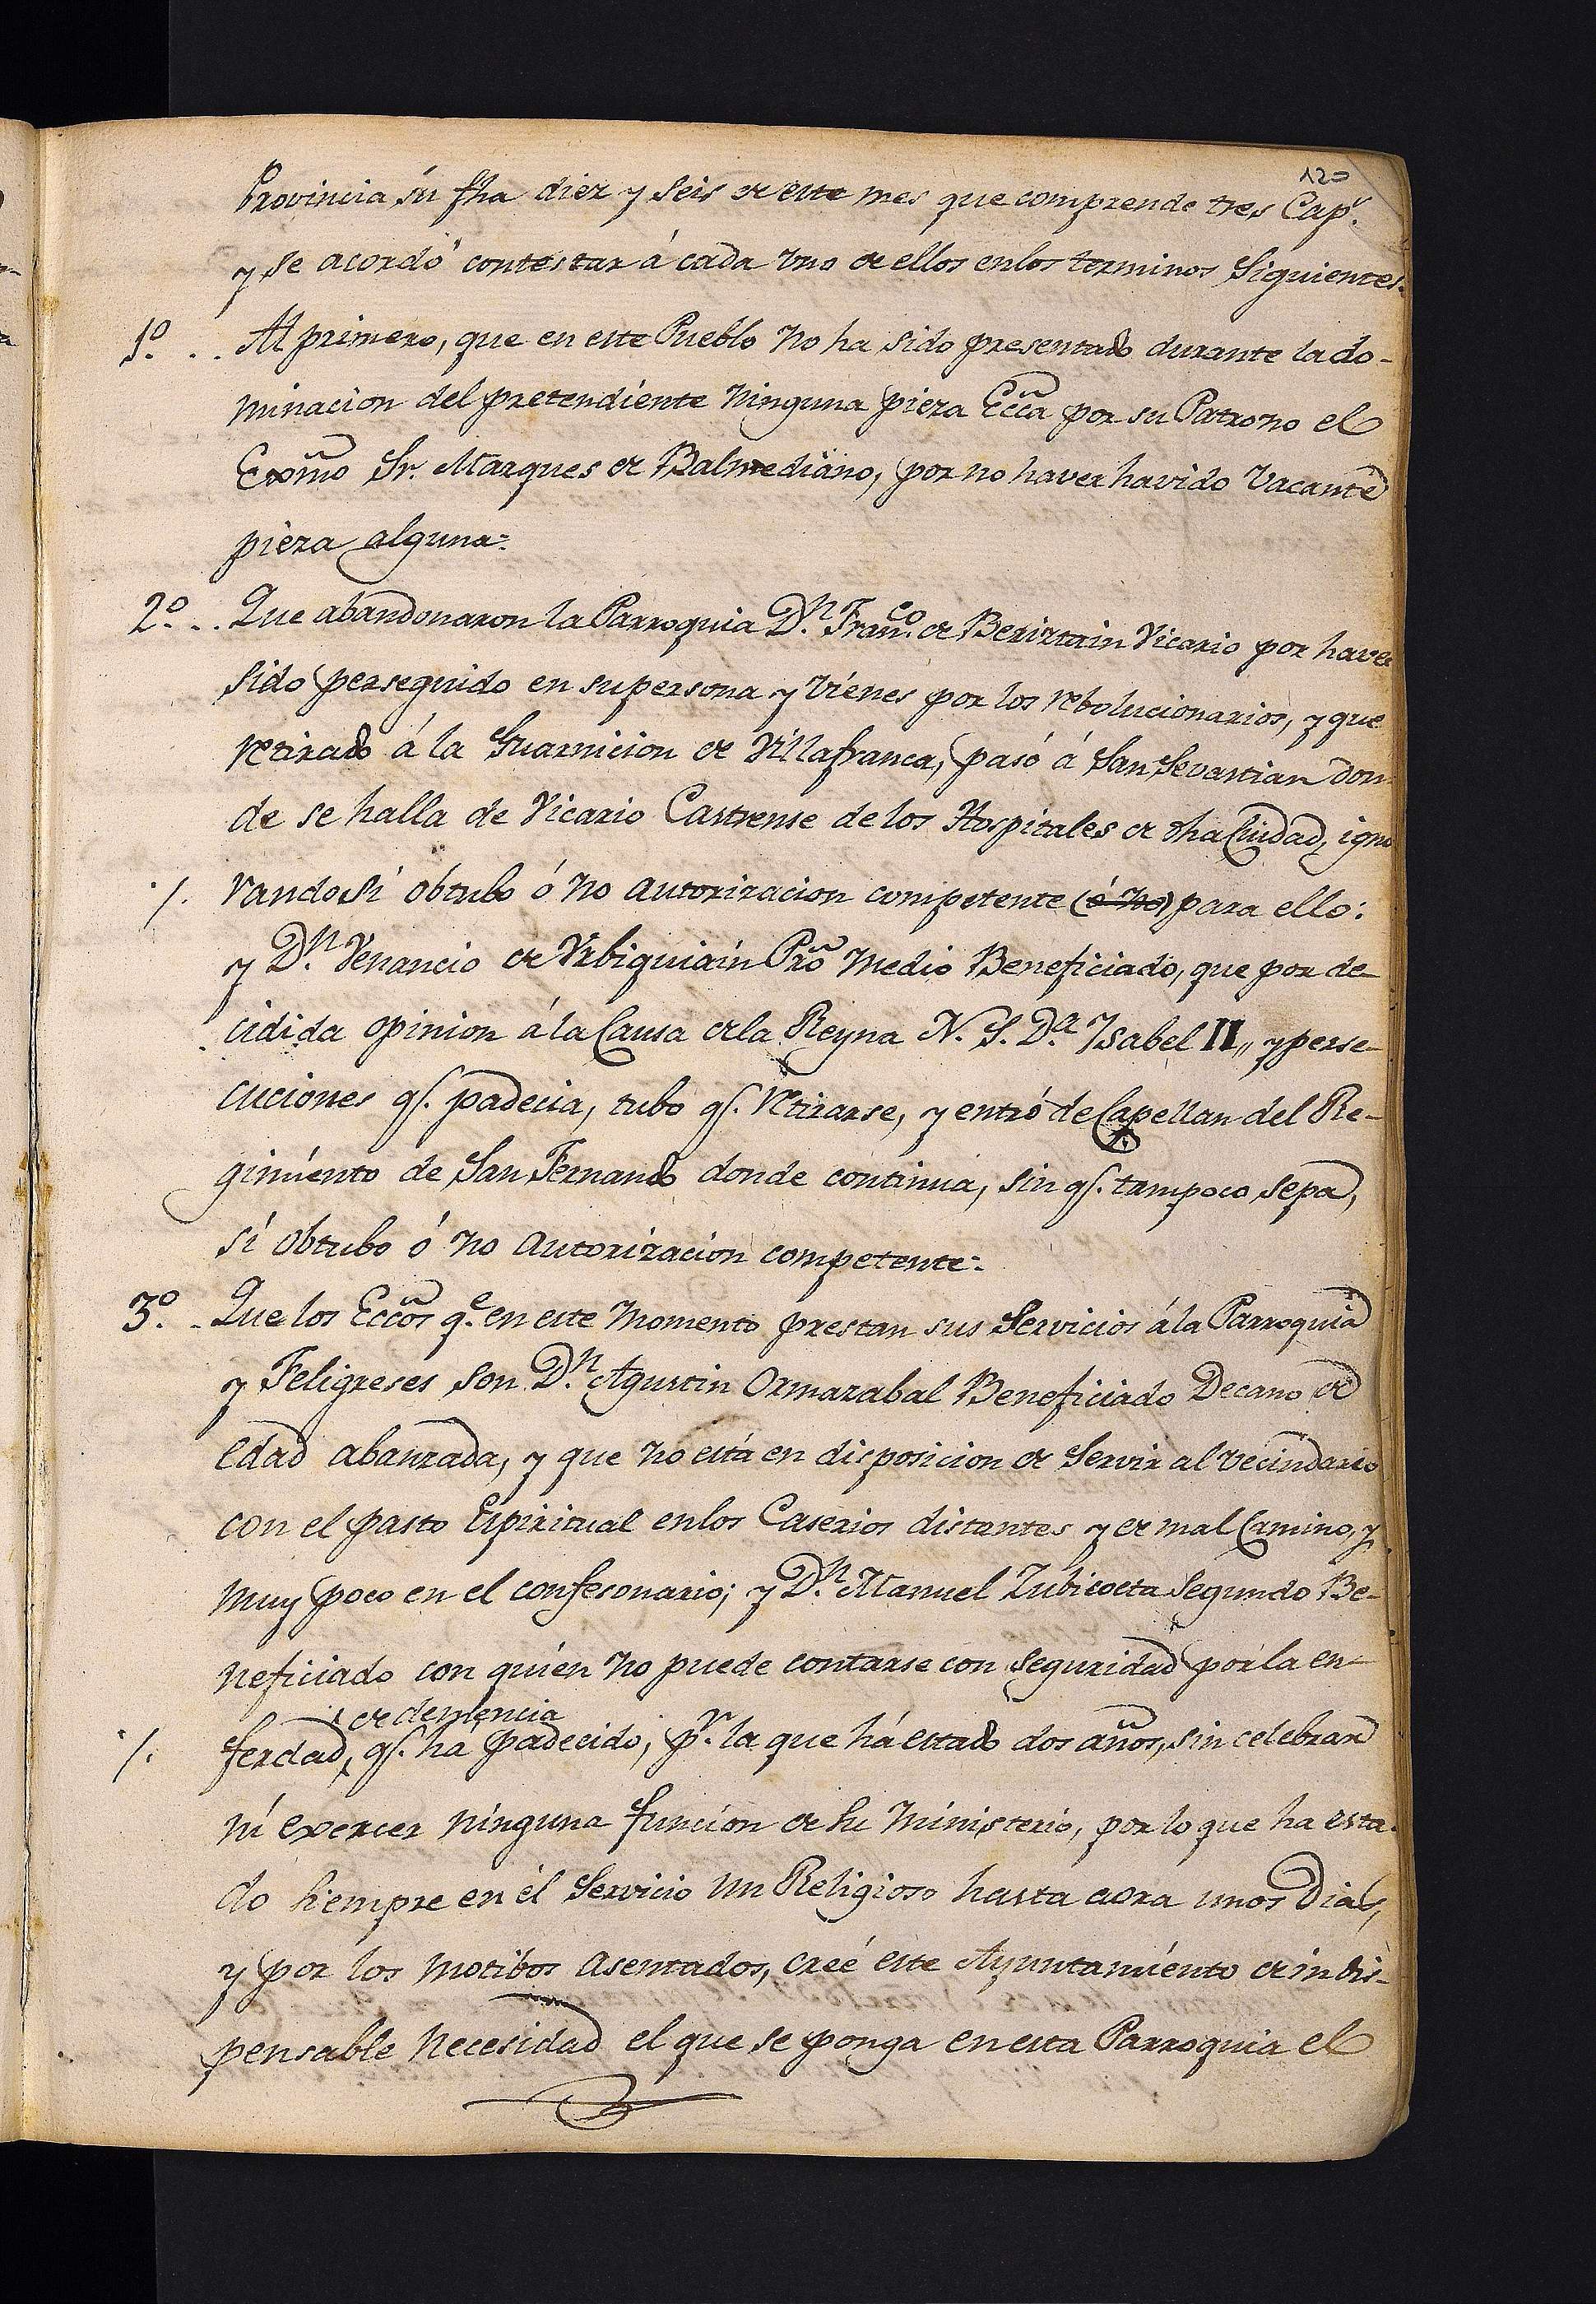 120
Provincia su fha diez y seis de este mes que comprende tres Cap.^s
y se acordó contestar á cada uno de ellos enlos terminos Siguientes.
1.º .. Al primero, que en este Pueblo no ha sido presentado durante la do-
minacion del pretendiente ninguna pieza Ecc̃a por su Patrono el
Exõmo Sr. Marques de Balmediano, por no haver havido vacante
pieza alguna:
2.º .. Que abandonaron la Parroquia D.n Fran.co de Beriztain Vicario por haver
sido perseguido en su persona y vienes por los rebolucionarios, y que
retirado á la Guarnicion de Villafranca, pasó á San Sevastian don
de se halla de Vicario Castrense de los Hospitales de dha Ciudad, igno
./. rando si obtubo ó no autorizacion competente (ó no) para ello:
y D.n Venancio de Urbiquiain Pro̅ medio Beneficiado, que por de-
cidida opinion á la Causa de la Reyna N. S. D.a Ysabel II,, y perse-
cuciones q.e padecia, tubo q.e retirarse, y entró de Capellan del Re-
gimiento de San Fernando donde continua, sin q.e tampoco sepa,
si obtubo ó no autorizacion competente:
3.º . Que los Ecc̃os q.e en este momento prestan sus Servicios á la Parroquia
y Feligreses son D.n Agustin Ormazabal Beneficiado Decano de
edad abanzada, y que no está en disposicion de Servir al vecindario
con el pasto Espiritual enlos Caserios distantes y de mal Camino, y
muy poco en el confesonario; y D.n Manuel Zubicoeta Segundo Be-
neficiado con quién no puede contarse con seguridad por la en-
de demencia
./. ferdad, q.e ha padecido; p.r la que há estado dos años, sin celebrar
ni exercer ninguna funcion de su ministerio, por lo que ha esta-
do siempre en él Servicio un Religioso hasta aora unos Dias,
y por los motibos asentados, creé este Ayuntamiento de indis-
pensable necesidad el que se ponga en esta Parroquia el